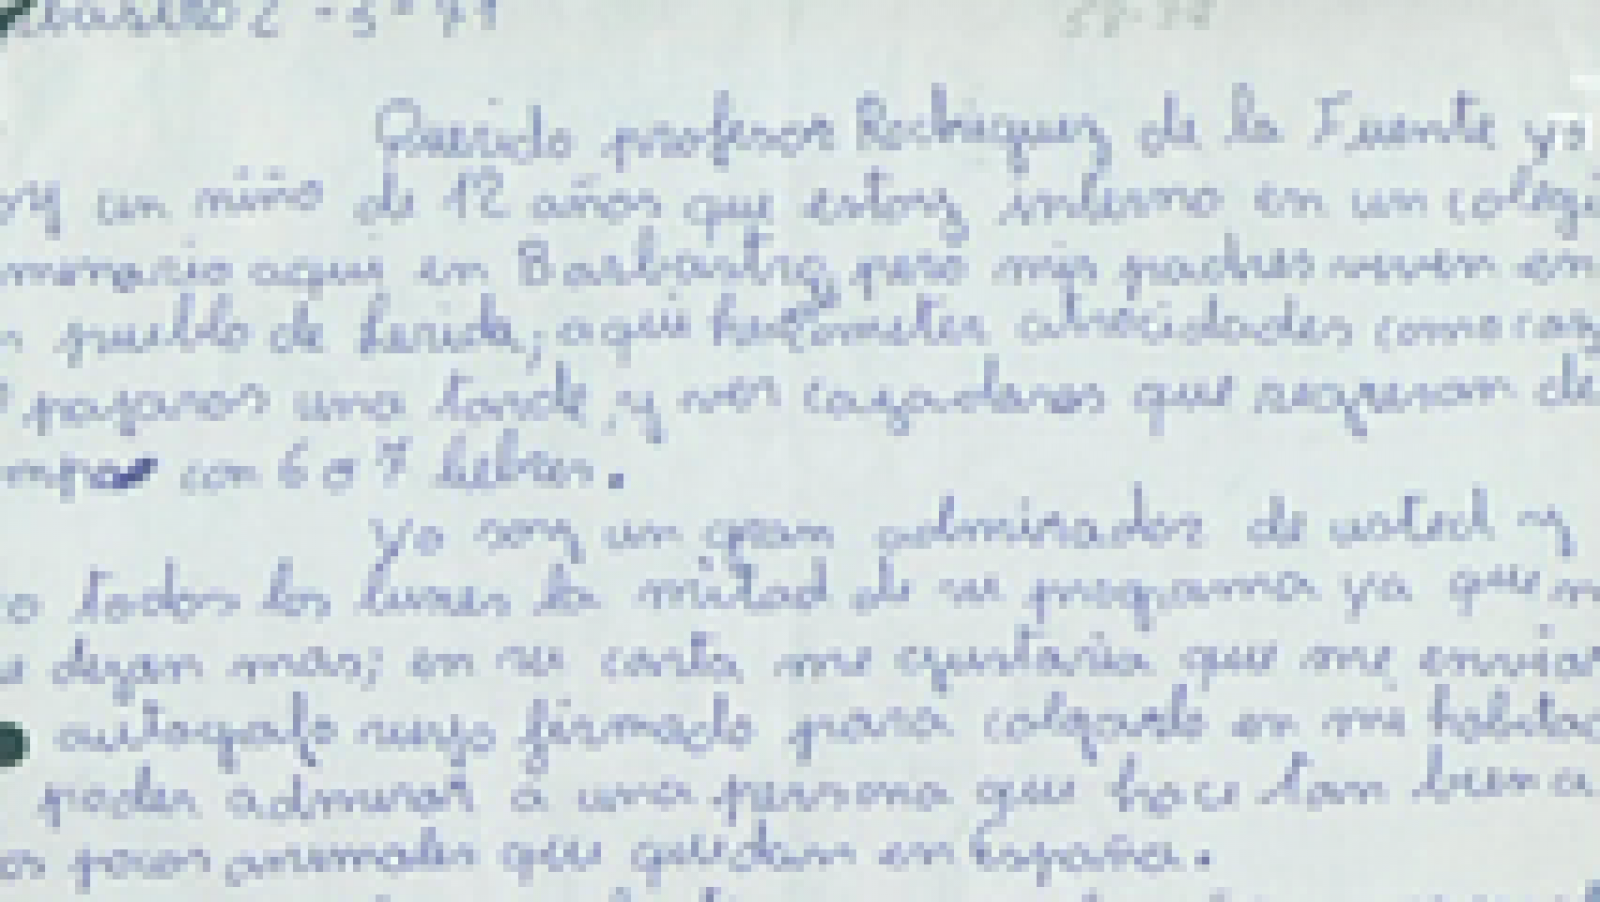 2 - 3 - 71
Querido profesor Rodriguez de la Fuente yo
un niño de 12 años que estoy interno en un colegi
aqui en Barbastro pero mis padres viven en
pueblo de Lerida; aqui cometer atrocidades como caz
pajaros una tarde, y ver cazadores que regresan de
con 6 o 7 liebres.
Yo soy un gran admirador de usted y
todos los lunes la mitad de su programa ya que n
dejan mas; en su carta me gustaria que me enviar
autografo suyo firmado para colgarlo en mi habitac
poder admirar a una persona que hace tan bien a
os pocos animales que quedan en España.